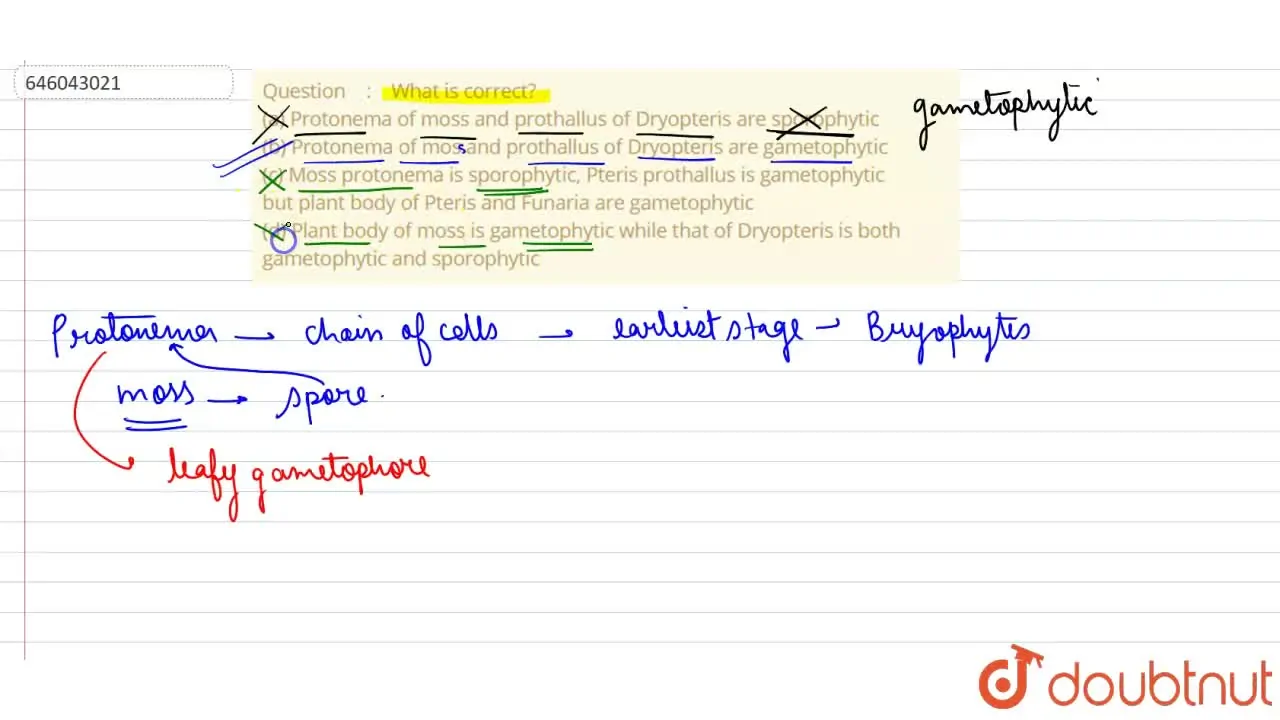 646043021
Question : What is correct?
(a) Protonema of moss and prothallus of Dryopteris are sporophytic
gametophytic
(b) Protonema of moss and prothallus of Dryopteris are gametophytic
(c) Moss protonema is sporophytic, Pteris prothallus is gametophytic
but plant body of Pteris and Funaria are gametophytic
(d) Plant body of moss is gametophytic while that of Dryopteris is both
gametophytic and sporophytic
Protonema → chain of cells → earleist stage – Bryophytes
moss → spore.
leafy gametophore
doubtnut